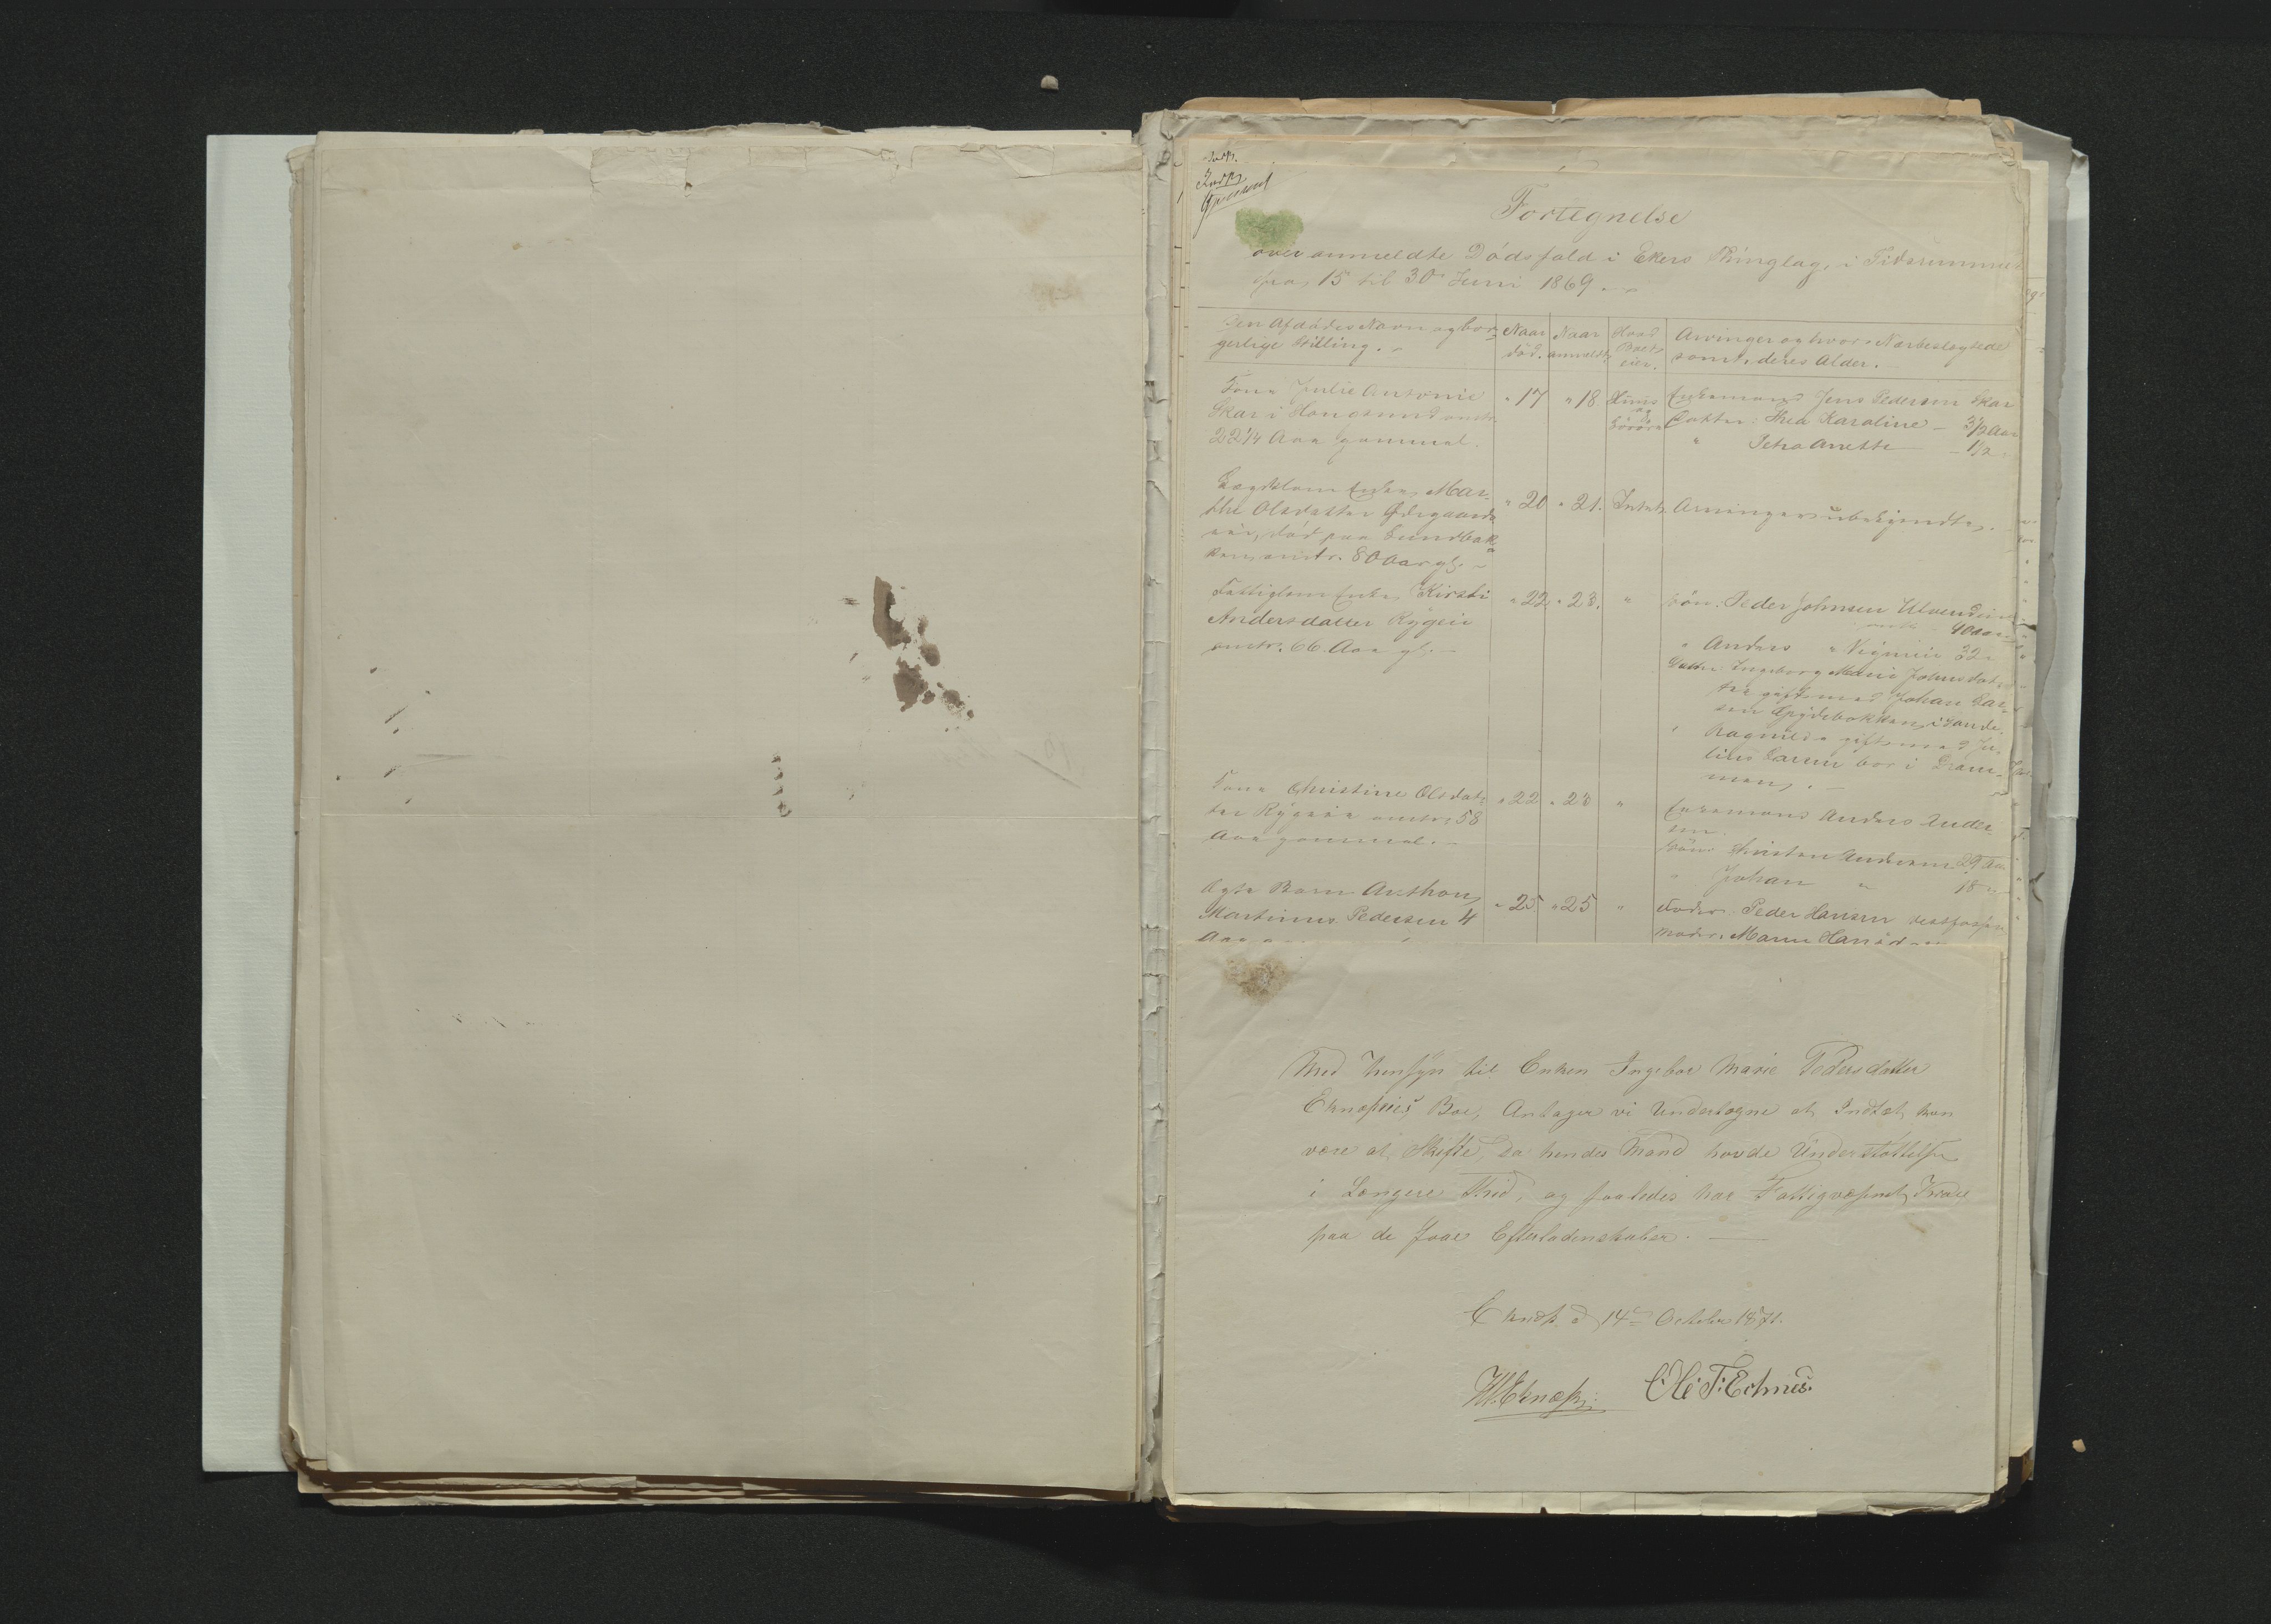 Fortegnelse
over anmeldte Dødsfald i Ekers Thinglag, i Tidsrummet
fra 15 til 30 Juni 1869.
Den Afdødes Navn og bor-
gerlige Stilling.
Naar
død.
Naar
anmeldt
Hvad
Boet
eier.
Arvinger og hvor Nærbeslægtede
samt deres Alder.
Kone Julie Antonie
Skar i Hougsund omtr.
22 1/4 Aar gammel.
" 17
" 18
Huus
og
Løsøre
Enkemand Jens Pedersen Skar
Datter: Thea Karoline — 3 1/2 Aar
" Petra Anette — 1 1/2
Lægdslem Enke Mar-
the Olsdatter
død paa Sundbak-
ken, omtr. 80 Aar gl.
" 20
" 21.
Intet
Arvinger ubekjendte.
Fattiglem Enke Kirsti
Andersdatter Rygeie
omtr. 66 Aar gl.
" 22
" 23.
"
Søn: Peder Johnsen
40 Aar
" Anders " 32
Datter Ingeborg Marie Johnsdat-
ter gift med Johan Lar-
sen i Sande
" Ragnilda gift med Ju-
lius Larsen bor i Dram-
men.
Kone Christine Olsdat-
ter omtr. 58
Aar gammel.
" 22
" 23
"
Enkemand Anders Ander-
sen.
Søn Christen Andersen 29 Aar
" Johan " 18 "
Ægte Barn Anthon
Martinus Pedersen 4
Aar
" 25
" 25
"
Fader Peder Hansen
Moder
Med Hensyn til Enken Ingebor Marie Pedersdatter
Boe, Antager vi Undertegne at Indtet kan
være at Skifte, da hendes Mand havde Understøttelse
i Længere Thid, og saaledes har Fattigvæsnet Krav
paa de faae Efterladenskaber. —
14de October 1871.